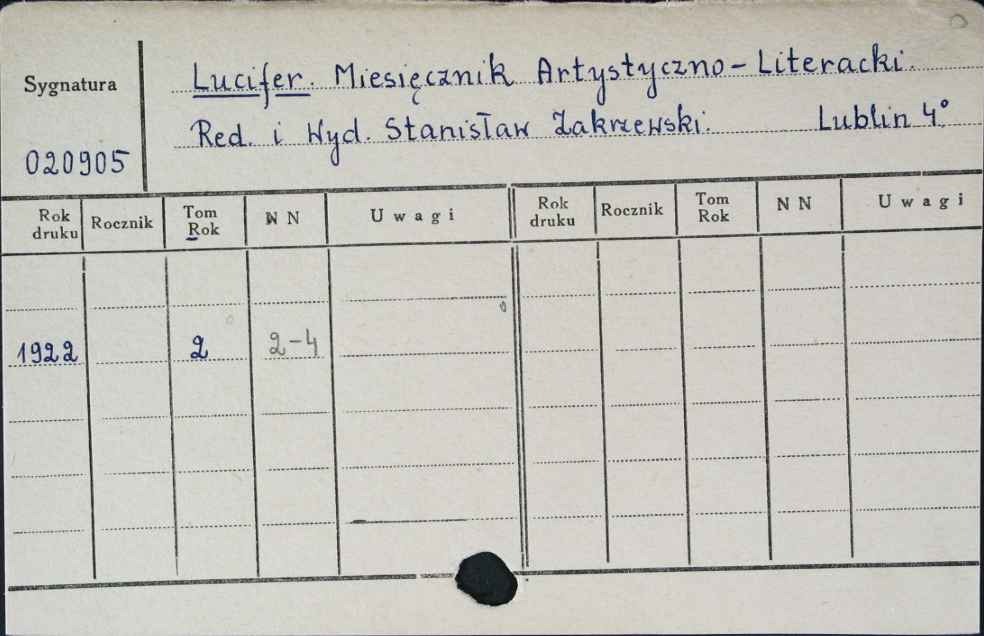 Sygnatura
Lucifer. Miesięcznik Artystyczno-Literacki.
Red. i Wyd. Stanisław Zakrzewski. Lublin 4°
020905
Rok druku Rocznik Tom Rok NN Uwagi Rok druku Rocznik Tom Rok NN Uwagi
1922 2 2-4